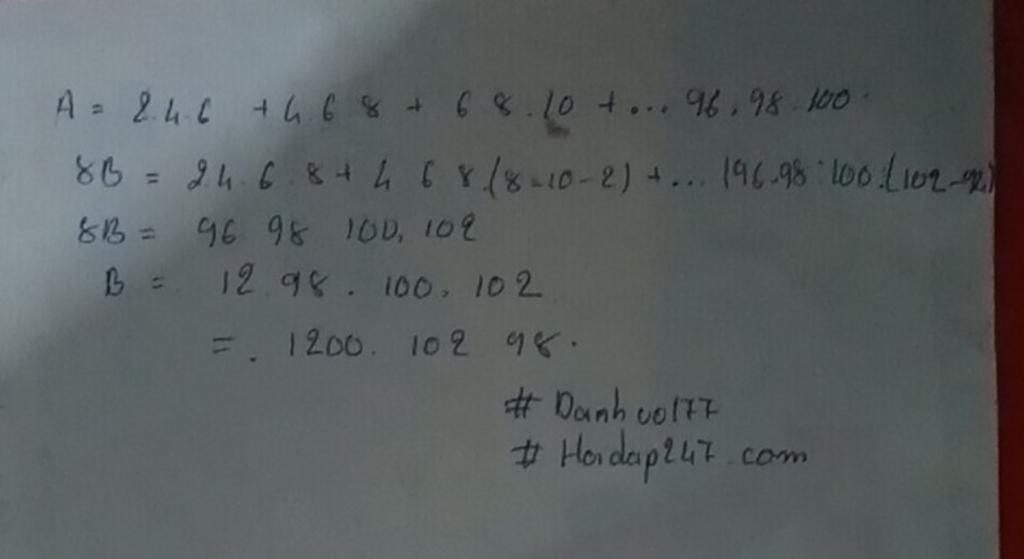 A = 2.4.6 + 4.6.8 + 6.8.10 + ... 96.98.100.
8B = 2.4.6.8 + 4 6 8.(8-10-2) + ... 196.98.100.(102-92)
8B = 96 98 100, 102
B = 12 98 . 100. 102
= . 1200. 102 98.
# Danhvo177
# Hoidap247.com